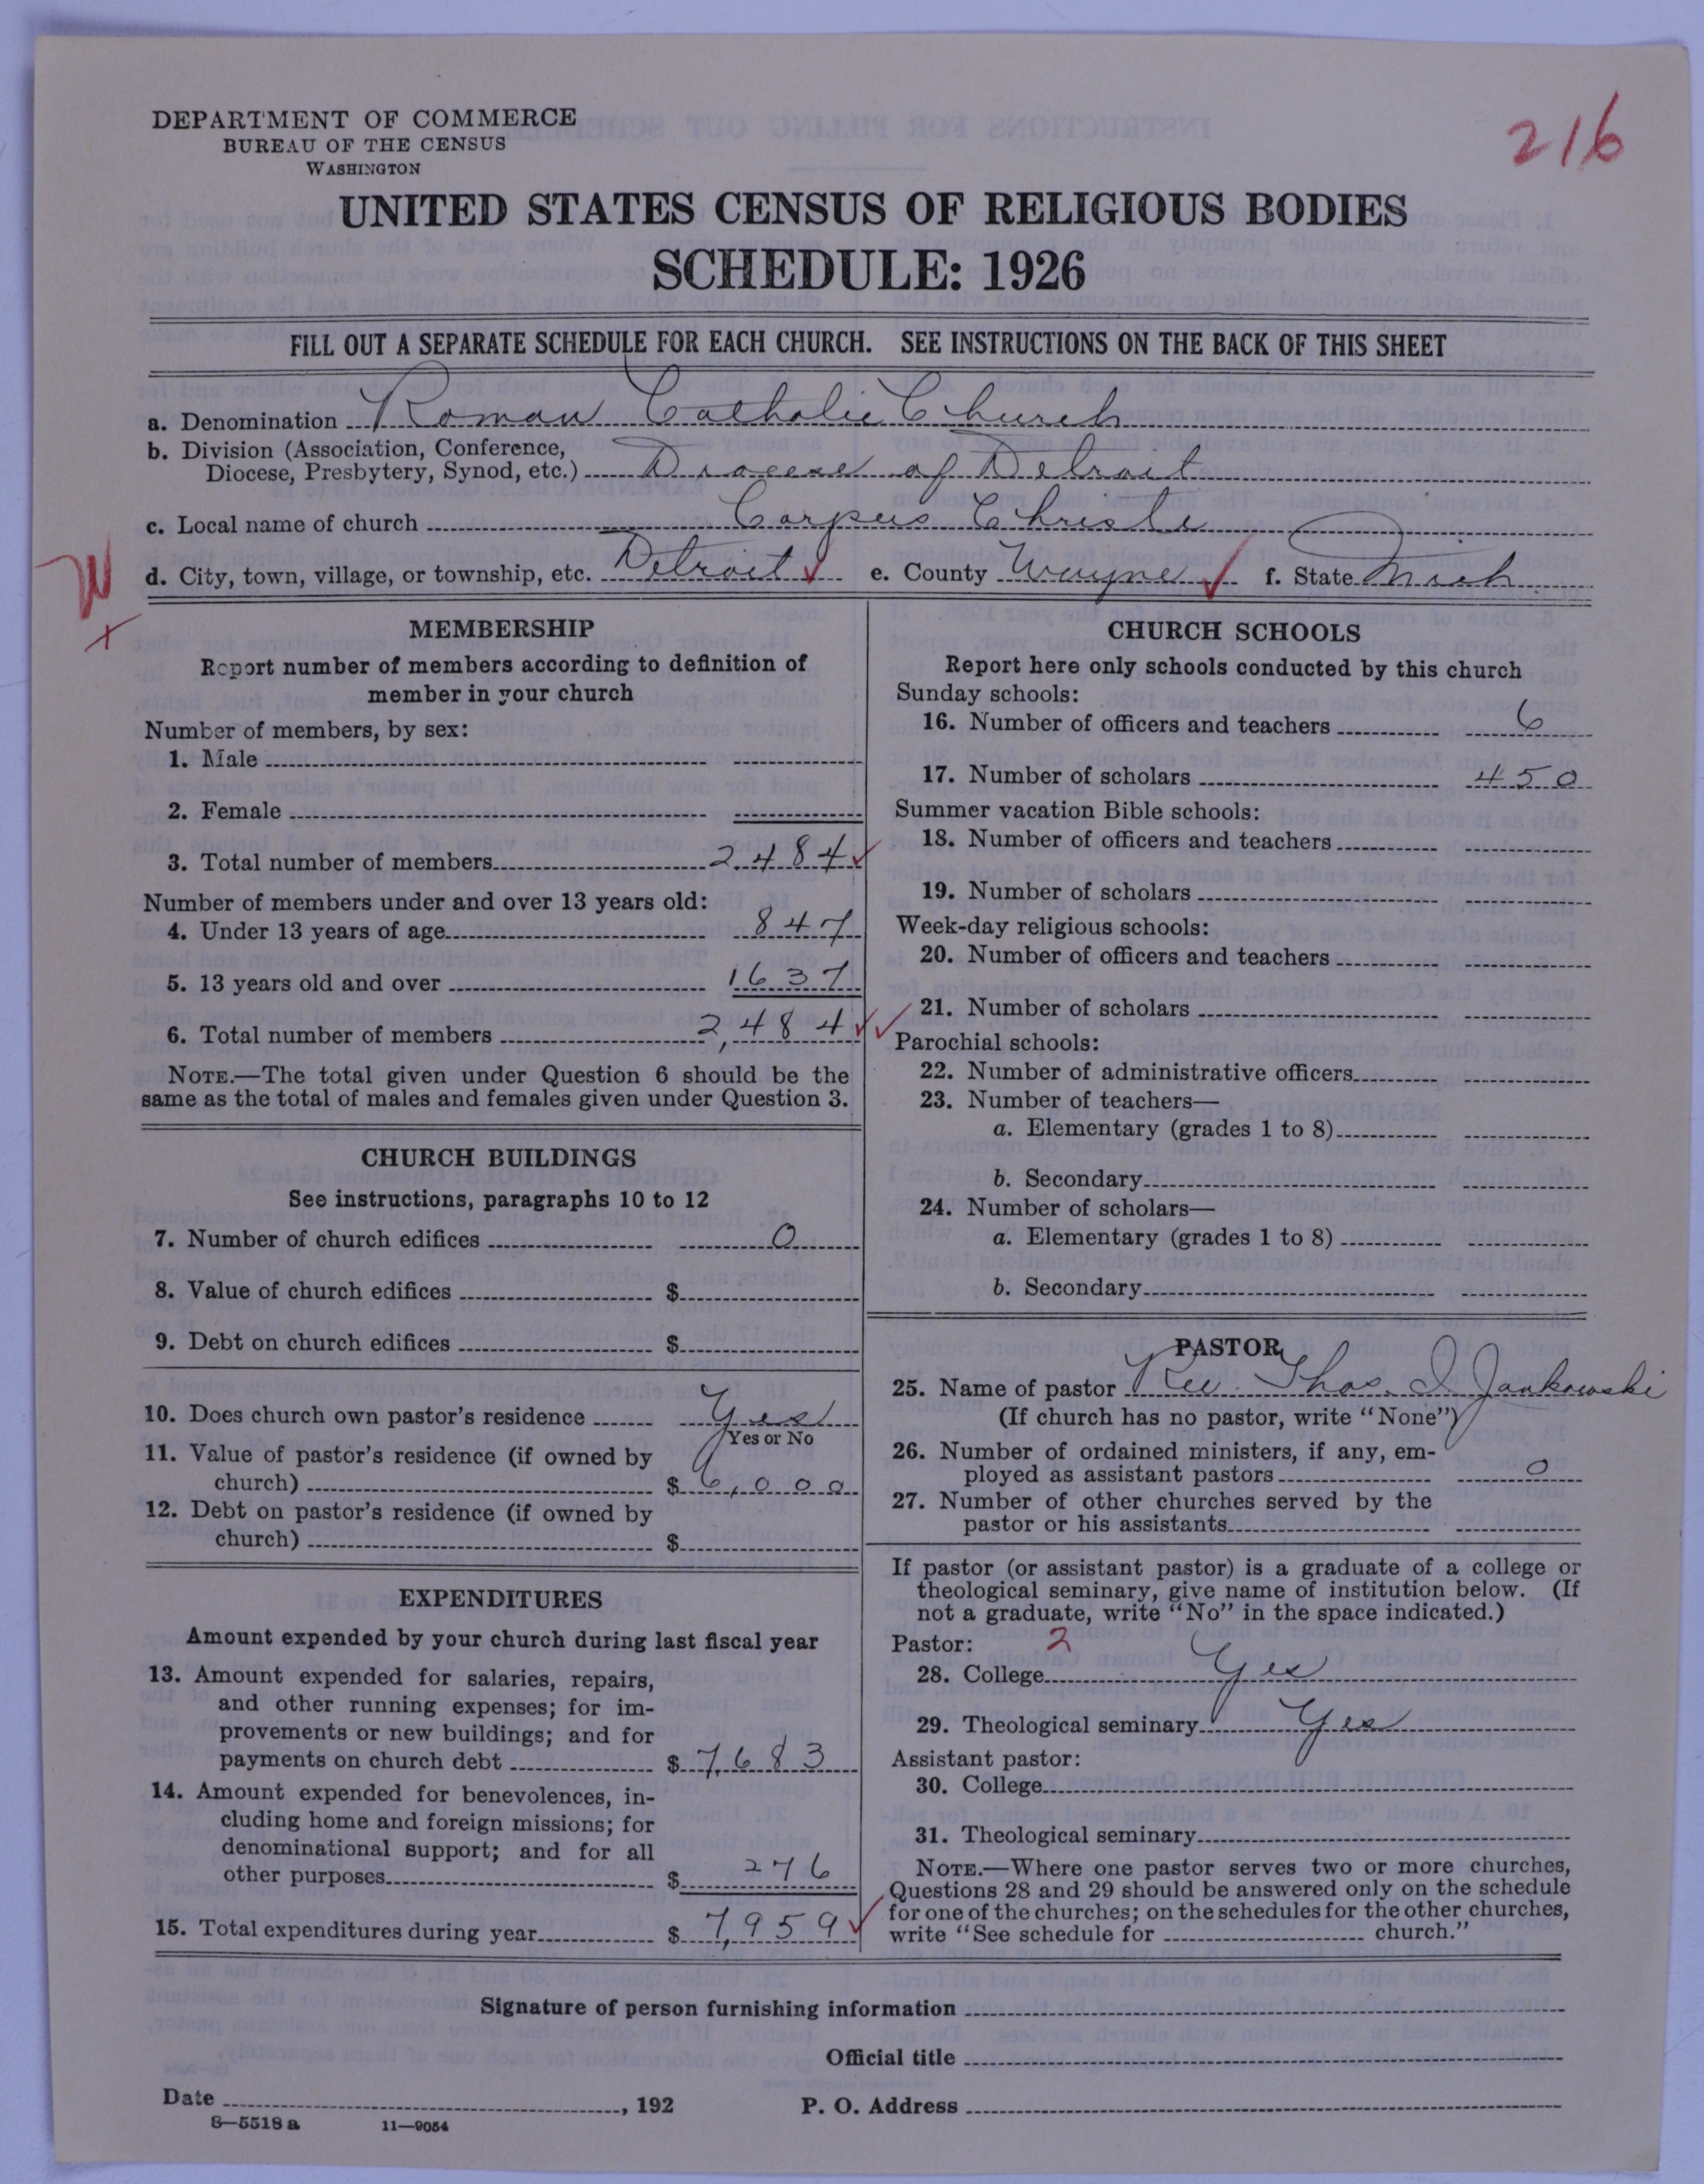 216
DEPARTMENT OF COMMERCE
BUREAU OF THE CENSUS
WASHINGTON
UNITED STATES CENSUS OF RELIGIOUS BODIES
SCHEDULE: 1926
FILL OUT A SEPARATE SCHEDULE FOR EACH CHURCH. SEE INSTRUCTIONS ON THE BACK OF THIS SHEET
a. Denomination Roman Catholic Church
b. Division (Association, Conference,
Diocese, Presbytery, Synod, etc.) Diocese of Detroit
c. Local name of church Corpus Christi
d. City, town, village, or township, etc. Detroit ✓ e. County Wayne ✓ f. State Mich
W
x
MEMBERSHIP
Report number of members according to definition of
member in your church
Number of members, by sex:
1. Male
2. Female
3. Total number of members 2484 ✓
Number of members under and over 13 years old:
4. Under 13 years of age 847
5. 13 years old and over 1637
6. Total number of members 2,484 ✓✓
NOTE.—The total given under Question 6 should be the
same as the total of males and females given under Question 3.
CHURCH BUILDINGS
See instructions, paragraphs 10 to 12
7. Number of church edifices 0
8. Value of church edifices $
9. Debt on church edifices $
10. Does church own pastor's residence Yes
Yes or No
11. Value of pastor's residence (if owned by
church) $ 6,000
12. Debt on pastor's residence (if owned by
church) $
EXPENDITURES
Amount expended by your church during last fiscal year
13. Amount expended for salaries, repairs,
and other running expenses; for im-
provements or new buildings; and for
payments on church debt $ 7,683
14. Amount expended for benevolences, in-
cluding home and foreign missions; for
denominational support; and for all
other purposes $ 276
15. Total expenditures during year $ 7,959 ✓
CHURCH SCHOOLS
Report here only schools conducted by this church
Sunday schools:
16. Number of officers and teachers 6
17. Number of scholars 450
Summer vacation Bible schools:
18. Number of officers and teachers
19. Number of scholars
Week-day religious schools:
20. Number of officers and teachers
21. Number of scholars
Parochial schools:
22. Number of administrative officers
23. Number of teachers—
a. Elementary (grades 1 to 8)
b. Secondary
24. Number of scholars—
a. Elementary (grades 1 to 8)
b. Secondary
PASTOR
25. Name of pastor Rev. Thos. I. Jankowski
(If church has no pastor, write "None")
26. Number of ordained ministers, if any, em-
ployed as assistant pastors 0
27. Number of other churches served by the
pastor or his assistants
If pastor (or assistant pastor) is a graduate of a college or
theological seminary, give name of institution below. (If
not a graduate, write "No" in the space indicated.)
Pastor: 2
28. College Yes
29. Theological seminary Yes
Assistant pastor:
30. College
31. Theological seminary
NOTE.—Where one pastor serves two or more churches,
Questions 28 and 29 should be answered only on the schedule
for one of the churches; on the schedules for the other churches,
write "See schedule for church."
Signature of person furnishing information
Official title
Date , 192 P. O. Address
8—5518 a 11—9054